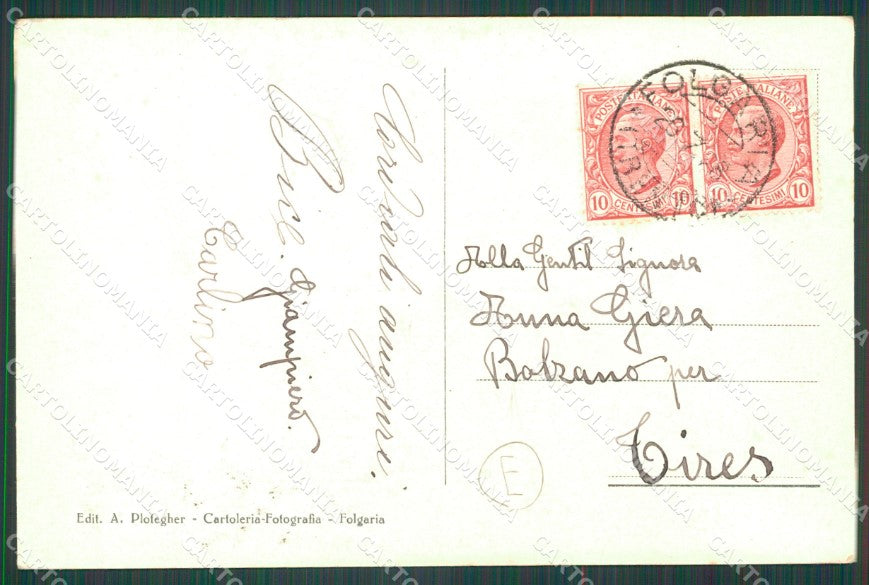 Cordiali auguri.
Bice. Giampiero.
Carlino
POSTE ITALIANE
10 CENTESIMI 10
POSTE ITALIANE
10 CENTESIMI 10
FOLGARIA
Alla Gentil Signora
Anna Giera
Bolzano per
Tires
E
Edit. A. Plotegher - Cartoleria-Fotografia - Folgaria
CARTOLINOMANIA